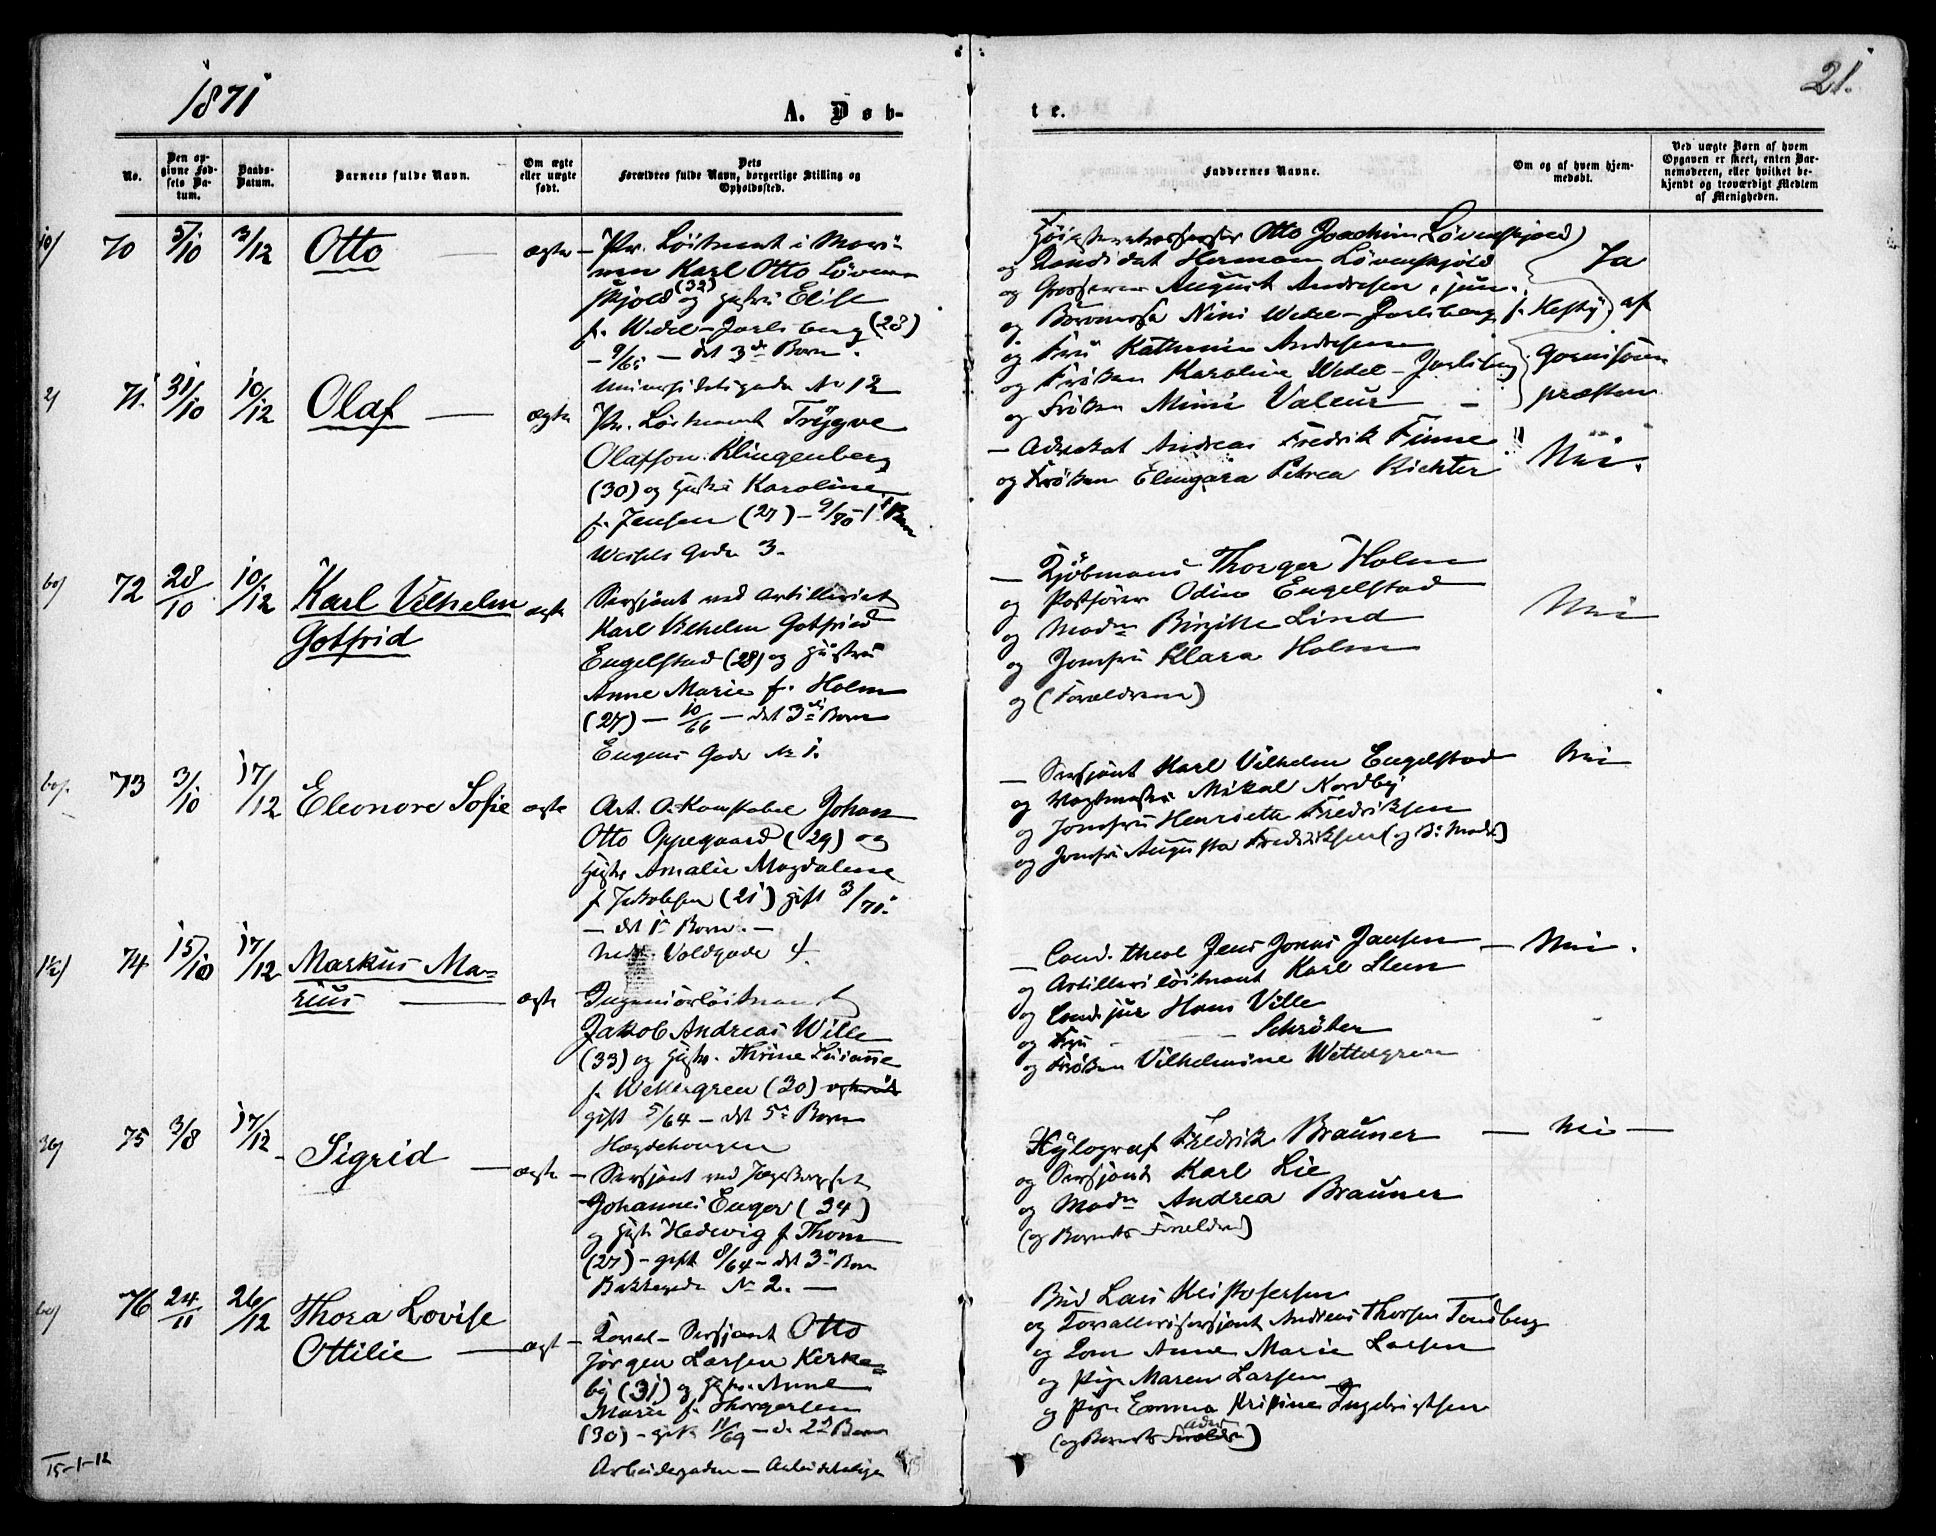 1871
21.
A. Døb-
te.
No.
Den opgivne Fødsels Datum.
Daabs-Datum.
Barnets fulde Navn.
Om ægte eller uægte født.
Dets Forældres fulde Navn, borgerlige Stilling og Opholdssted.
Faddernes Navne.
Om og af hvem hjemmedøbt.
Ved uægte Børn af hvem Opgaven er skeet, enten Barnemoderen, eller hvilket bekjendt og troværdigt Medlem af Menigheden.
70 5/10 3/12 Otto ægte
Pr. Løitnant i Mari-
nen Karl Otto Løven-
skjold (32) og Hustru Elise
f. Wedel-Jarlsberg (28)
det 3de Barn.
Universitetsgade No 12
Otto Joachim Løvenskjold
og Kandidat Herman Løvenskjold
og Grosserer August Andresen, jun.
og Baronesse Nini Wedel-Jarlsberg f. Kefty
og Fru Kathrine Andresen
og Frøken Karoline Wedel-Jarlsberg
og Frøken Mimi Valeur
Ja
af
Garnisons
præsten
2) 71. 31/10 10/12 Olaf ægte
Pr. Løitnant Trygve
Olafson Klingenberg
(30) og Hustru Karoline
f. Jensen (27) - 9/70 - 1st Barn
Wessels Gade 3.
Advokat Andreas Fredrik Finne
og Frøken Elingara Petrea Richter
Nei.
72 28/10 10/12 Karl Vilhelm
Gotfrid
ægte
Sersjant ved Artilleriet
Karl Vilhelm Gotfried
Engelstad (28) og Hustru
Anne Marie f. Holm
(27) - 10/66 - det 3die Barn
Eugens Gade No 1.
Kjøbmand Thorger Holm
og Postfører Odin Engelstad
og Madm Birgitte Lind
og Jomfru Klara Holm
og (Forældrene)
Nei
73 3/10 17/12 Eleonore Sofie ægte
Art. O. Konstabel Johan
Otto Oppegaard (29) og
Hustr. Amalie Magdalene
f. Jakobsen (21) gift 3/71.
- det 1ste Barn. -
Voldgade 4.
Sersjant Karl Vilhelm Engelstad
og Vagtmester Mikal Nordby
og Jomfru Henriette Fredriksen
og Jomfru Augusta Fredriksen (og B: Moder)
Nei
74 15/10 17/12 Markus Ma-
rius
ægte
Ingeniørløitnant
Jakob Andreas Wille
(33) og Hustr. Thrine Lovise
f. Wettergreen (30)
gift 5/64 - det 5te Barn
Hægdehaugen
Cand. theol Jens Jonas Jansen
og Artilleriløitnant Karl Steen
og Cand. jur Hans Ville
og Fru Schrøter
og Frøken Vilhelmine Wettergreen
Nei.
75 3/8 17/12 Sigrid ægte
Sersjant ved Jægerkorpset
Johannes Enger (34)
og Hustr. Hedevig f. Thom
(27) - gift 8/64 - det 3die Barn
Bakkegade No 2. -
Xylograf Fredrik Brauner
og Sersjant Karl Lie
og Madm Andrea Brauner
(og Barnets Forældre)
Nei
76 24/11 26/12 Thora Lovise
Ottilie
ægt
Kaval- Sersjant Otto
Jørgen Larsen Kirke-
by (31) og Hustr. Anne
Marie f. Thorgersen
(30) - gift 11/69 - d. 2d Barn
Arbeidergaden
Bud Lars Kristofersen
og Kavallerisersjant Andreas Thorsen Tandberg
og Kone Anne Marie Larsen
og Pige Maren Larsen
og Pige Emma Kristine Ingebrigtsen
(og Barnets Forældre)
15-1-12